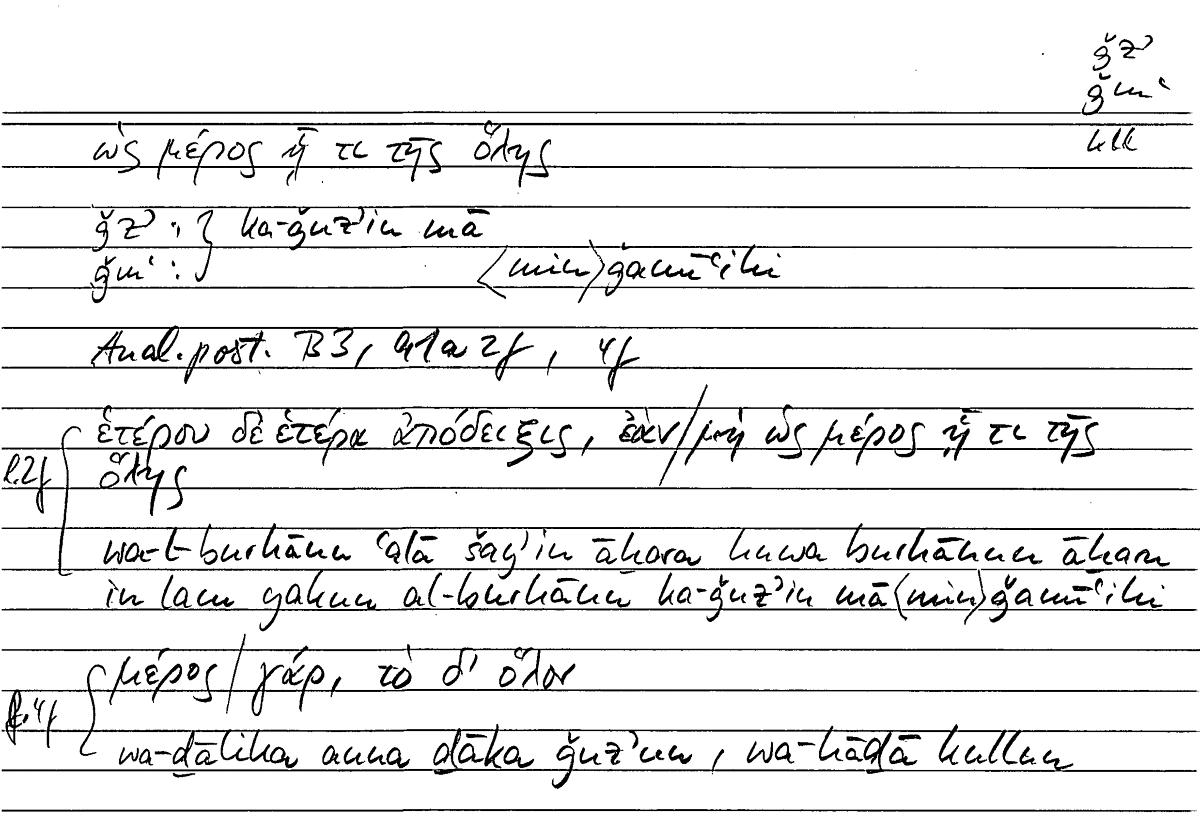 ǧzʾ
ǧmʿ
kll
ὡς μέρος ᾖ τι τῆς ὅλης
ǧzʾ : } ka-ǧuzʾin mā
ǧmʿ : ⟨min⟩ ǧamīʿihi
Anal. post. B 3, 91a 2f, 4f
ἑτέρου δὲ ἑτέρα ἀπόδειξις, ἐὰν/μὴ ὡς μέρος ᾖ τι τῆς
l. 2f ὅλης
wa-l-burhānu ʿalā šayʾin āḫara huwa burhānun āḫaru
in lam yakun al-burhānu ka-ǧuzʾin mā ⟨min⟩ ǧamīʿihi
μέρος/γάρ, τὸ δ' ὅλον
l. 4f
wa-ḏālika anna ḏāka ǧuzʾun, wa-hāḏā kullun